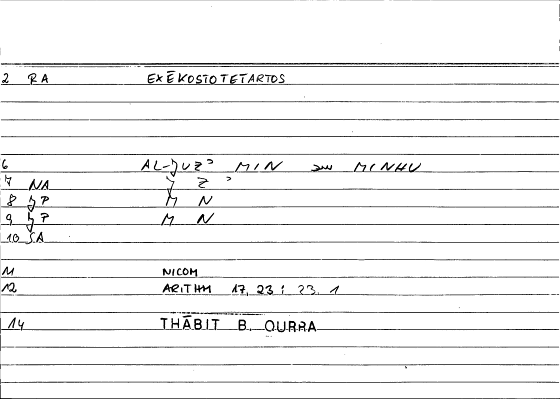 2 RA EXĒKOSTOTETARTOS
6 AL-JUZʾ MIN MINHU
7 NA J Z ʾ
8 JP M N
9 JP M N
10 SA
11 NICOM
12 ARITHM 17, 23 ; 23. 1
14 THĀBIT B. QURRA